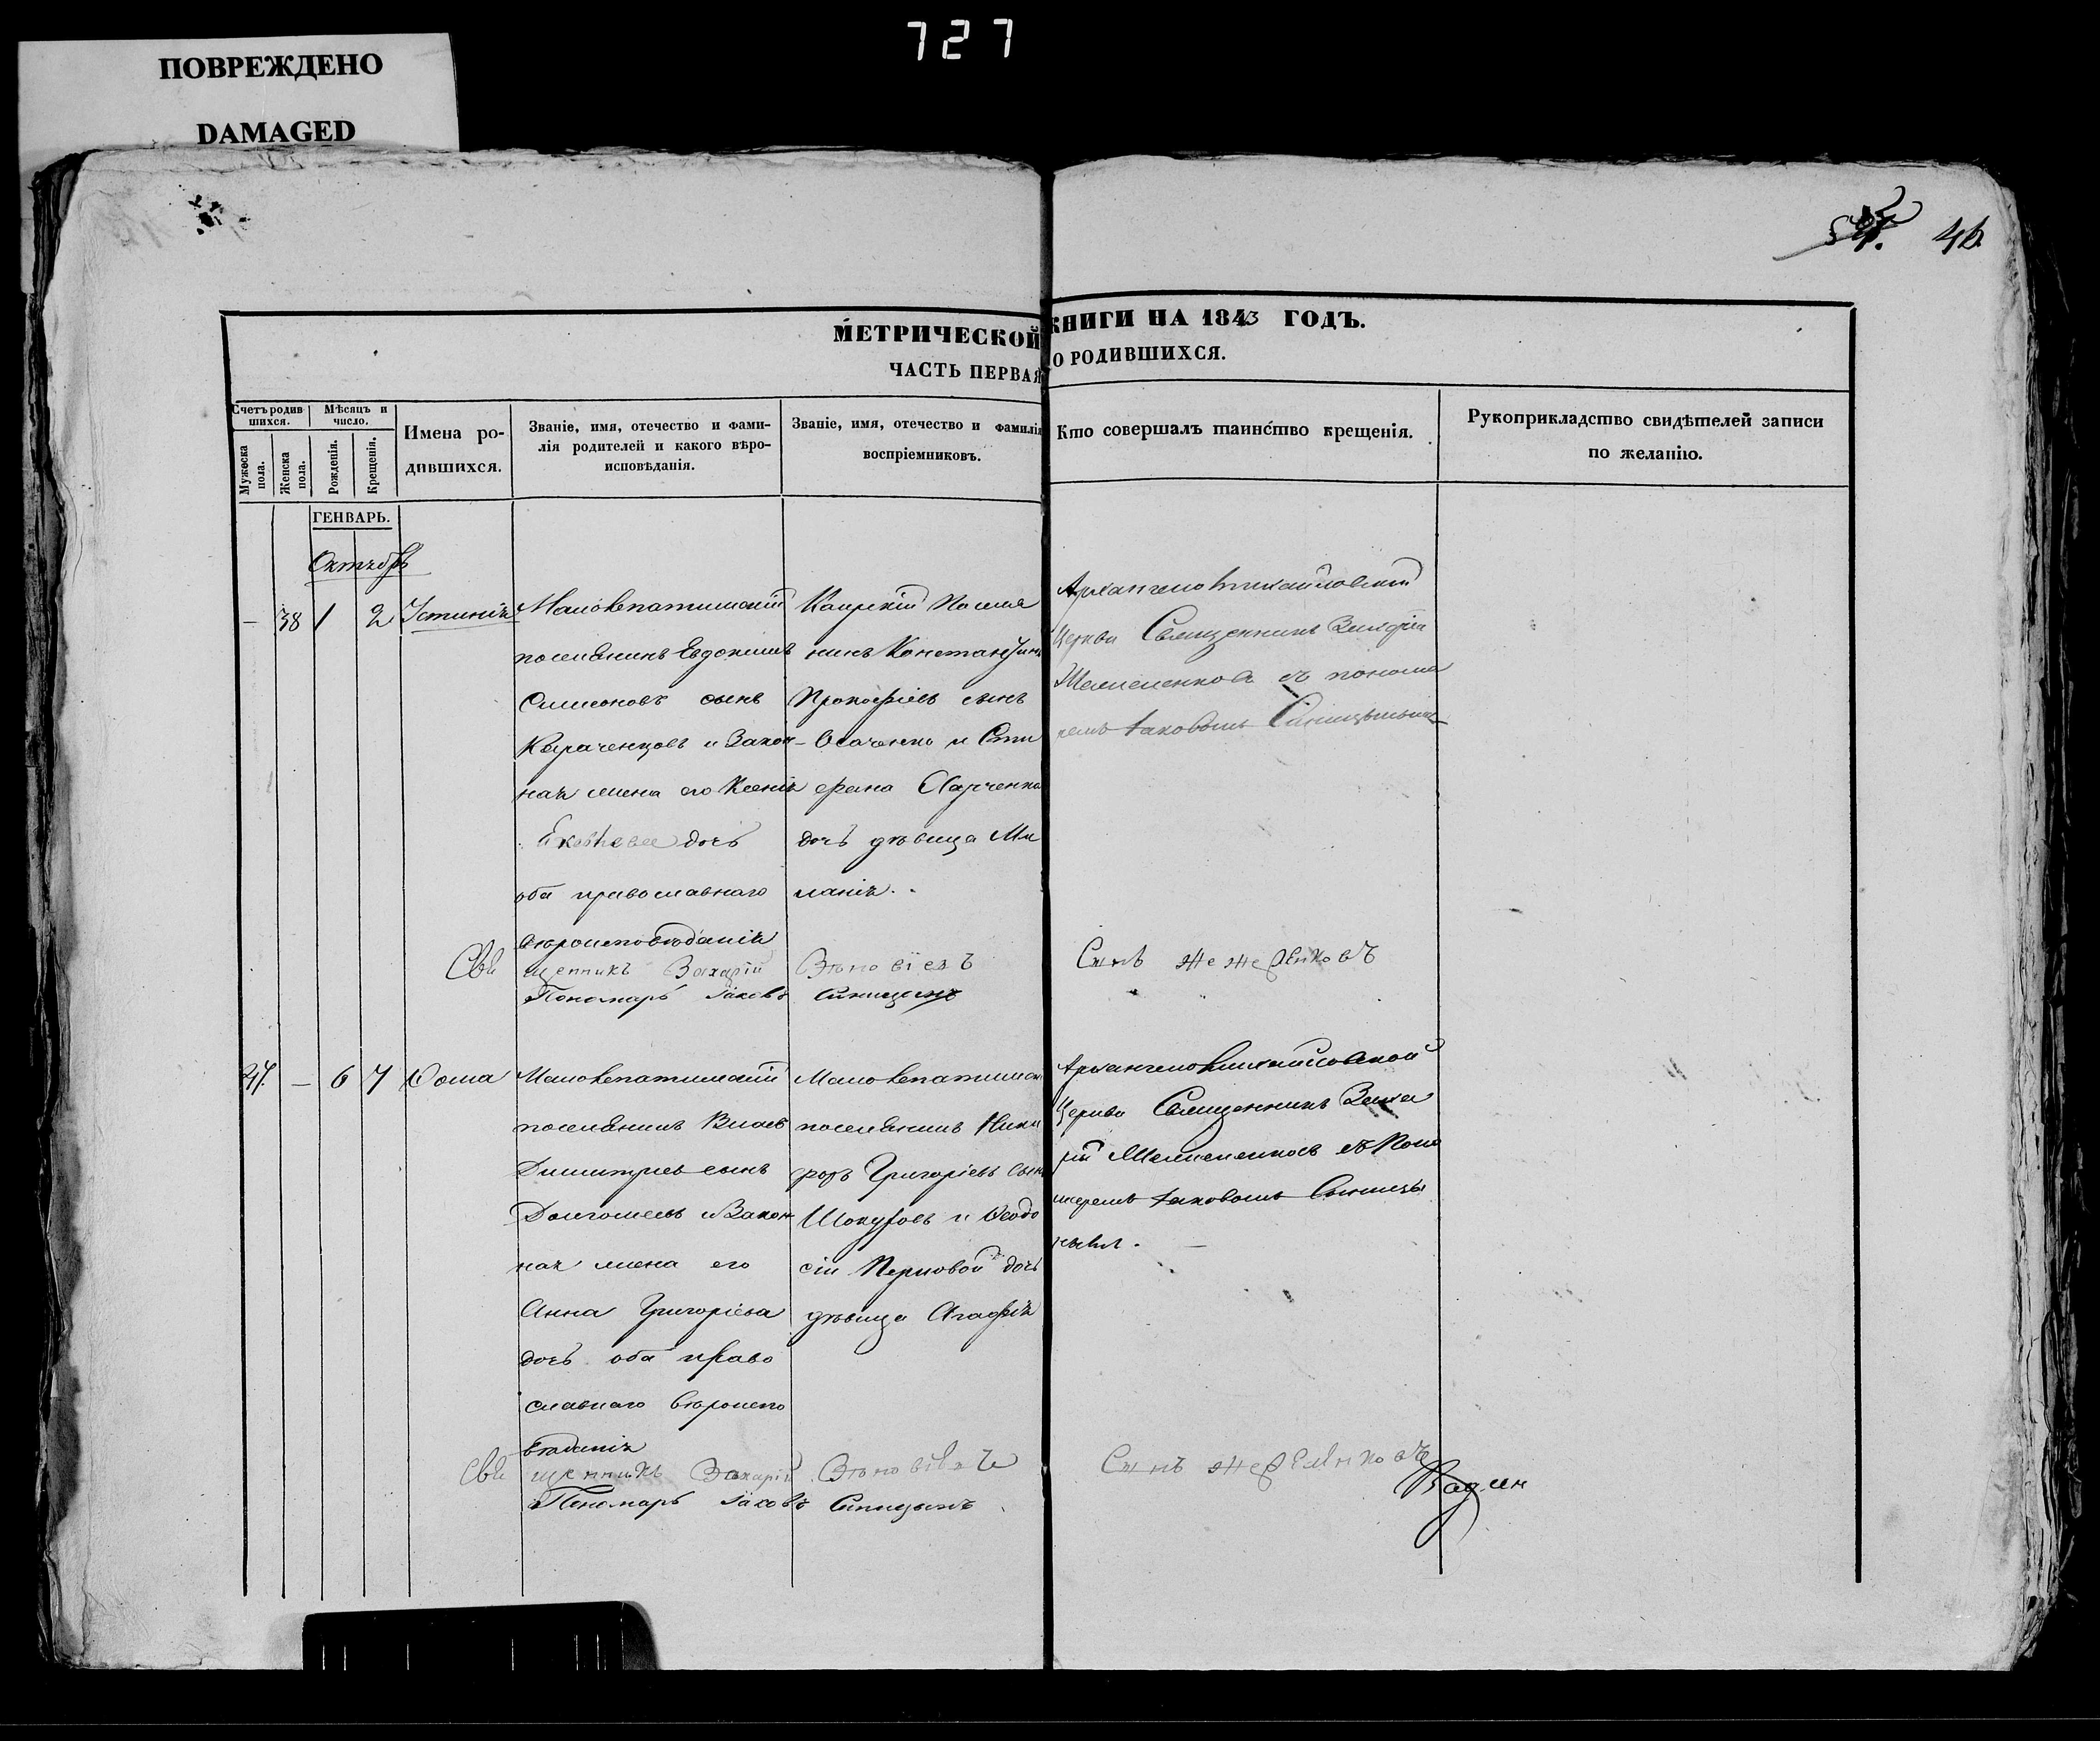 727
ПОВРЕЖДЕНО
DAMAGED
46
МЕТРИЧЕСКОЙ КНИГИ НА 1843 ГОДЪ.
ЧАСТЬ ПЕРВАЯ О РОДИВШИХСЯ.
Счетъ родившихся.
Мужеска пола.
Женска пола.
Мѣсяцъ и число.
Рожденія.
Крещенія.
Имена родившихся.
Званіе, имя, отечество и фами-
лія родителей и какого вѣро-
исповѣданія.
Званіе, имя, отечество и фамилія
воспріемниковъ.
Кто совершалъ таинство крещенія.
Рукоприкладство свидѣтелей записи
по желанію.
ГЕНВАРЬ.
Октябрь
— 38 1 2 Устинія
поселянинъ Евдокимъ
Симеоновъ сынъ
и Закон-
ная жена его Ксенія
дочь
оба православнаго
вѣроисповѣданія
Каирскій Поселя
нинъ Константинъ
Прокофіевъ сынъ
Осаченко и Сте
фана Харченка
дочь дѣвица Ме
ланія.
Архангело Михайловской
Церкви Священникъ Захарій
съ понома
ремъ Іаковомъ Синицынымъ
Священникъ Захарій Зѣновіевъ Сынъ
Пономарь Іаковъ Синицынъ
— 6 7 Ѳома
поселянинъ Власъ
Димитріевъ сынъ
и Закон
ная жена его
Анна Григоріева
дочь оба право
славнаго вѣроиспо
вѣданія
поселянинъ Ники
форъ Григоріевъ сынъ
и Ѳеодо
сія дочь
дѣвица Агафія
Архангело Михайловской
Церкви Священникъ Заха
рій съ Поно
маремъ Іаковомъ Синицы
нымъ.
Священникъ Захарій Зѣновіевъ Сынъ
Пономарь Іаковъ Синицынъ